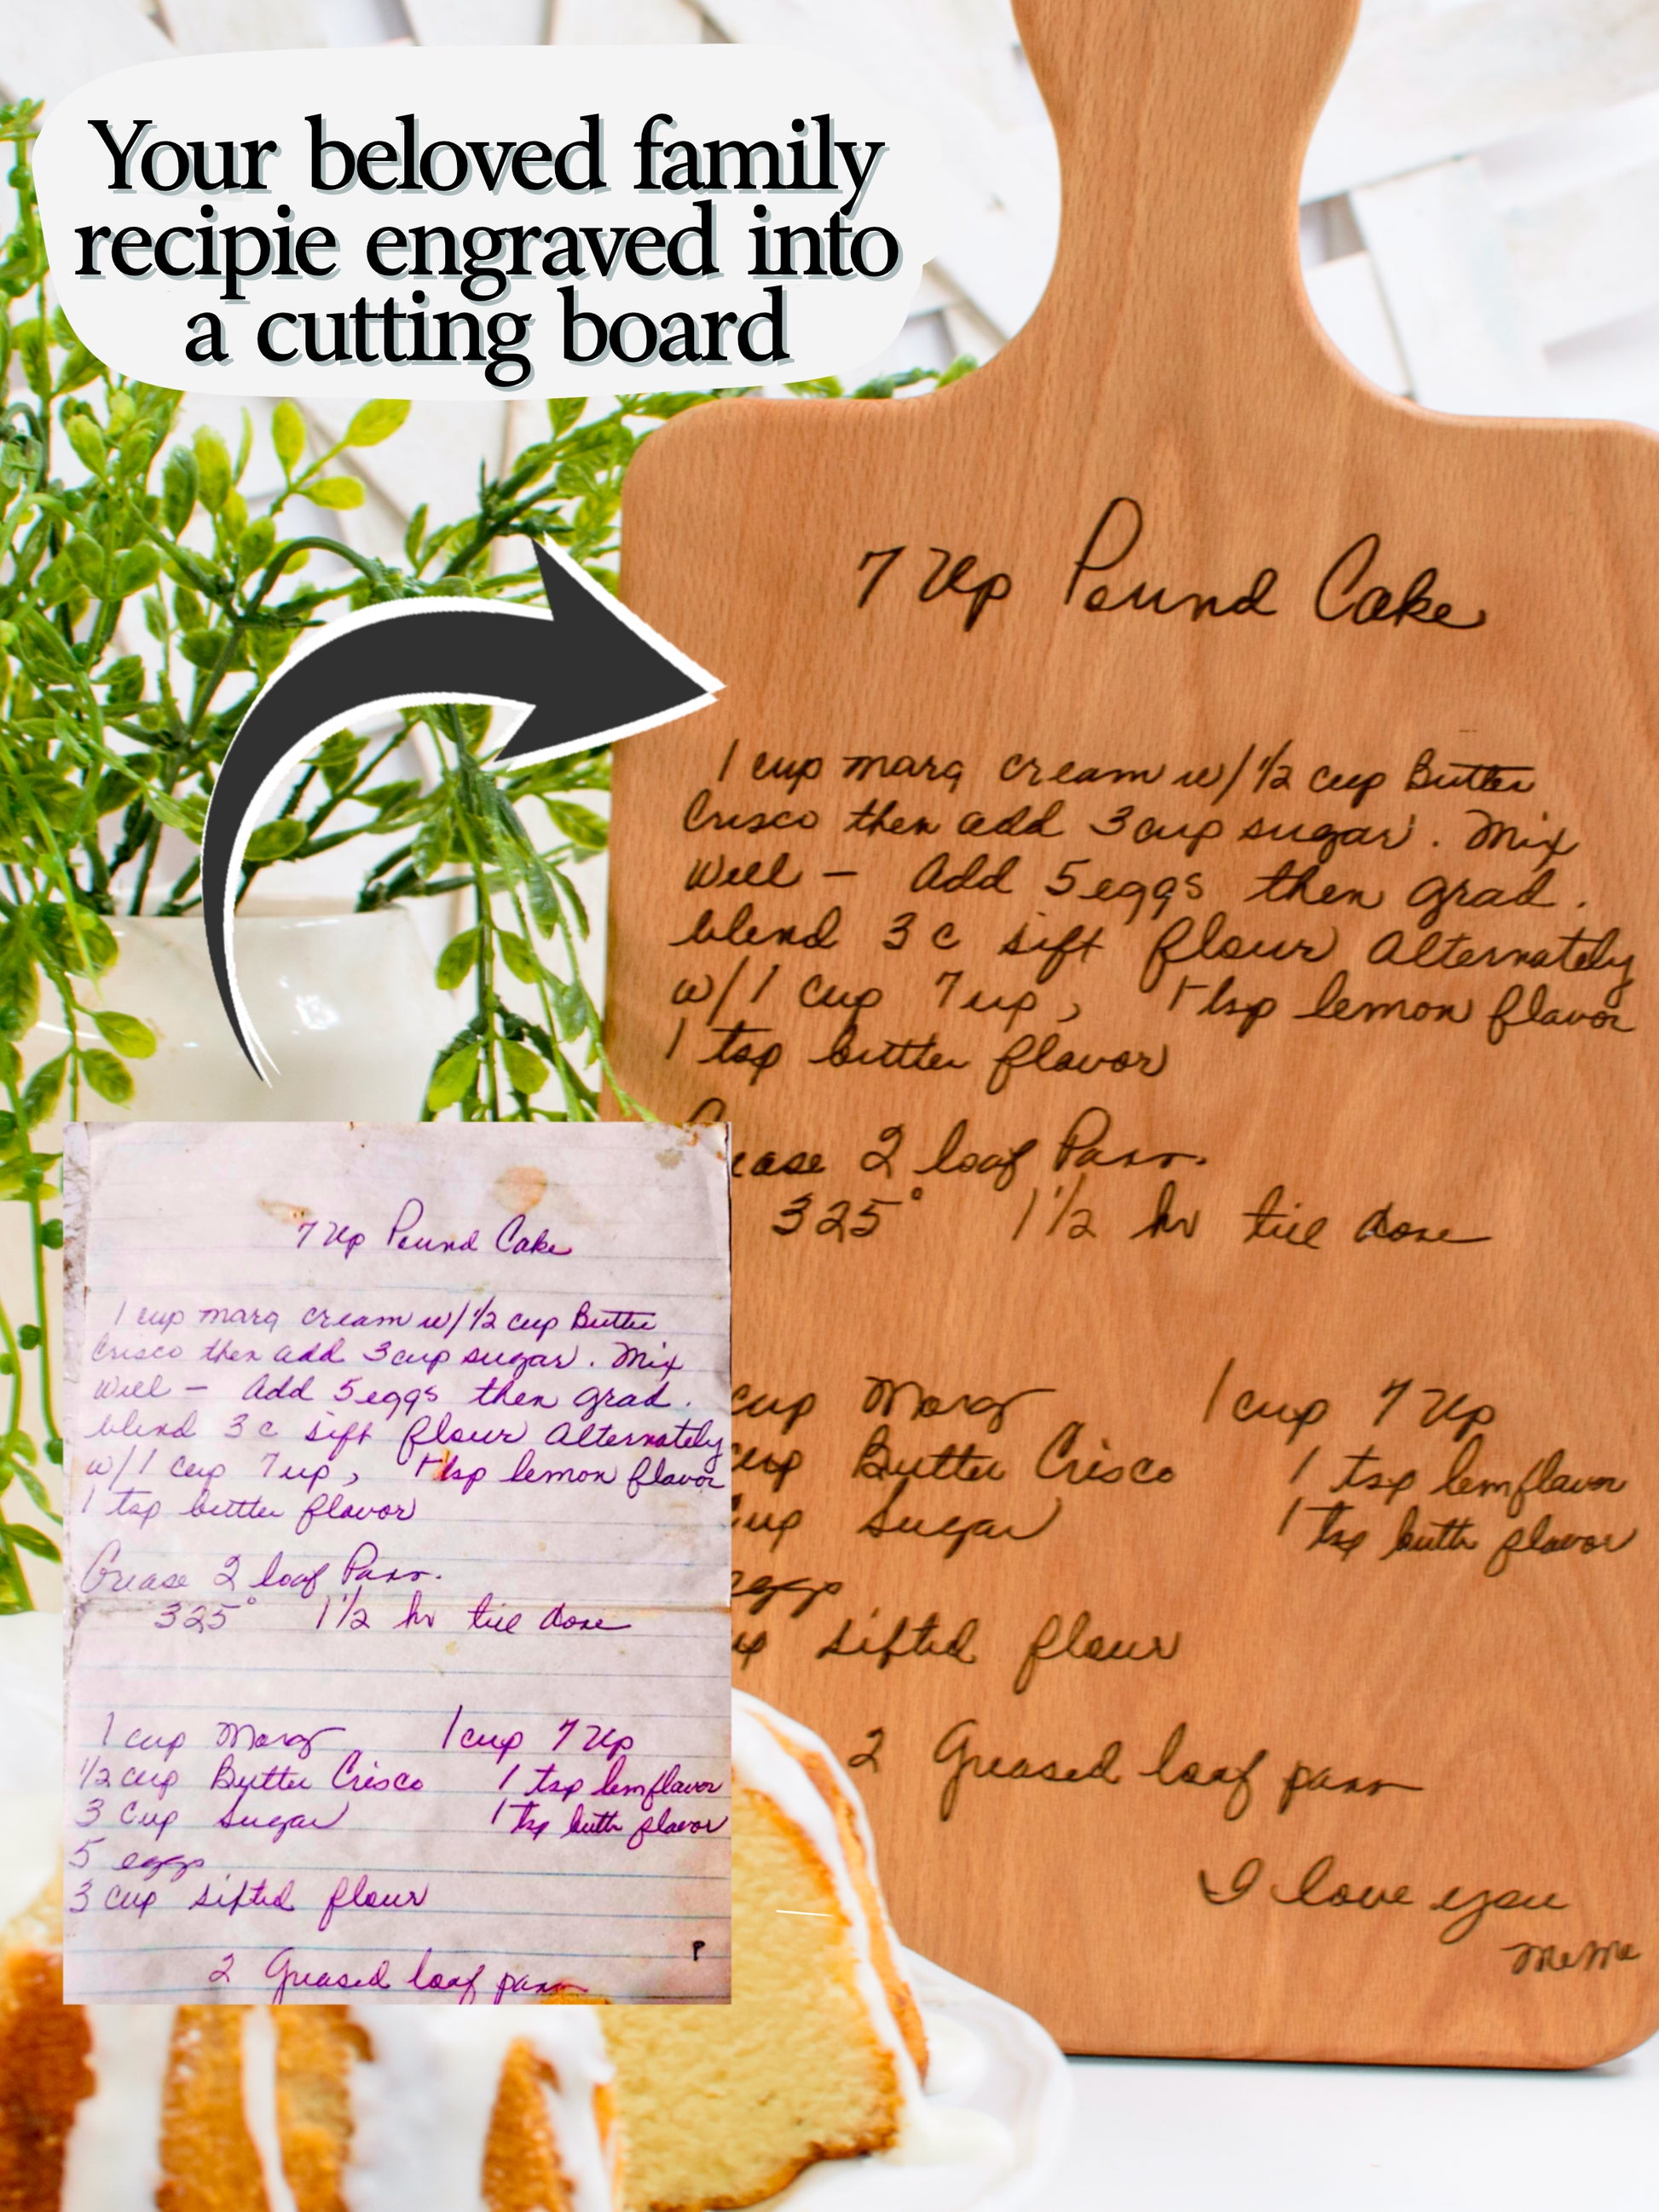 Your beloved family
recipie engraved into
a cutting board
7 Up Pound Cake
1 cup marg cream w/ 1/2 cup Butter
Crisco then add 3 cup sugar. Mix
Well - Add 5 eggs then grad.
blend 3 c sift flour Alternately
w/ 1 cup 7 up, 1 tsp lemon flavor
1 tsp butter flavor
Grease 2 loaf Pans.
325° 1 1/2 hr till done
cup Marg 1 cup 7 Up
cup Butter Crisco 1 tsp lem flavor
cup Sugar 1 tsp butt flavor
eggs
sifted flour
2 Greased loaf pans
I love you
MeMe
7 Up Pound Cake
1 cup marg cream w/ 1/2 cup Butter
Crisco then add 3 cup sugar. Mix
Well - Add 5 eggs then grad.
blend 3 c sift flour Alternately
w/ 1 cup 7 up, 1 tsp lemon flavor
1 tsp butter flavor
Grease 2 loaf Pans.
325° 1 1/2 hr till done
1 cup Marg 1 cup 7 Up
1/2 cup Butter Crisco 1 tsp lem flavor
3 cup Sugar 1 tsp butt flavor
5 eggs
3 cup sifted flour
2 Greased loaf pans